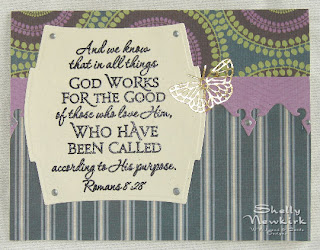 And we know
that in all things
GOD WORKS
FOR THE GOOD
of those who love Him,
WHO HAVE
BEEN CALLED
according to His purpose.
Romans 8:28
Shelly
Newkirk